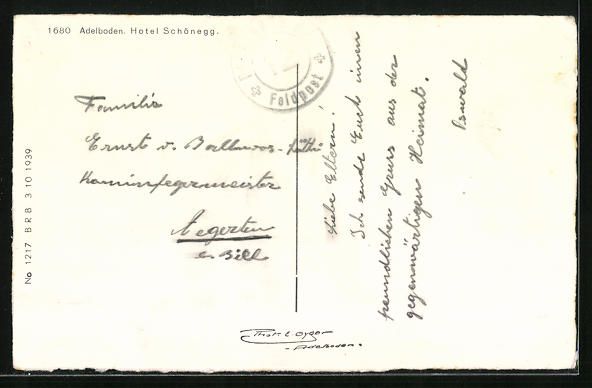 1680 Adelboden. Hotel Schönegg.
Feldpost
Familie
Ernst v.
Kaminfegermeister
Aegerten
Liebe Eltern!
Ich sende Euch einen
freundlichen Gruss aus der
gegenwärtigen Heimat.
Oswald
No 1217 B R B 3 10 1939
Adelboden.